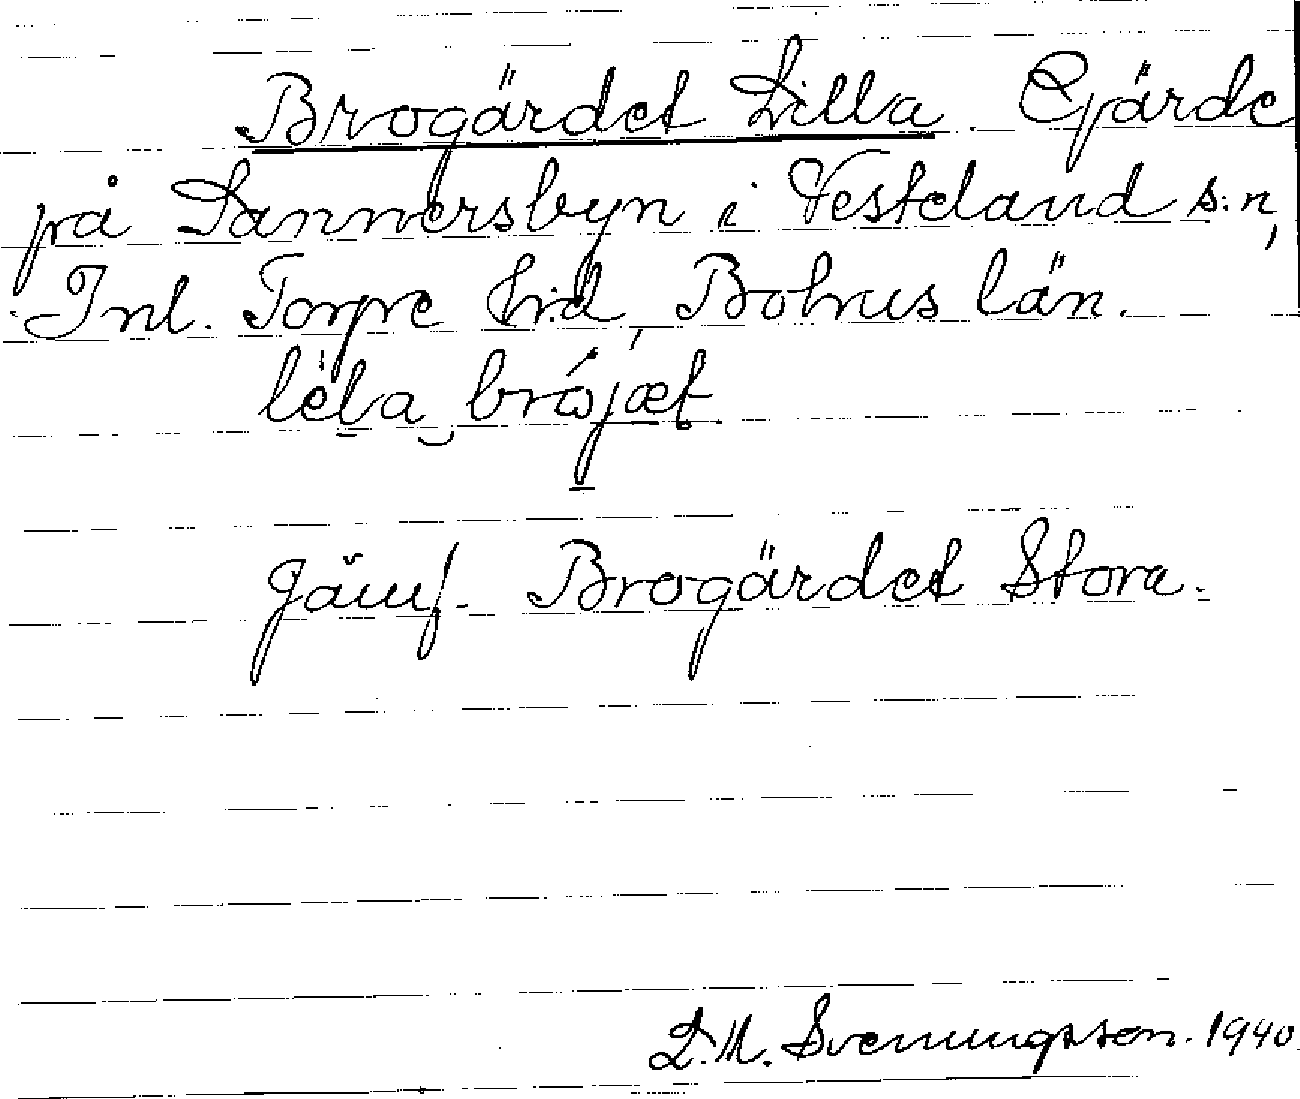 Brogärdet Lilla Gjärde
på Lannersbyn i Vesteland s:n,
Inl. Torpe hrd, Bohus län.
lela bröjæt
Jämf. Brogärdet Stora.
L. M. Svenungsson. 1940